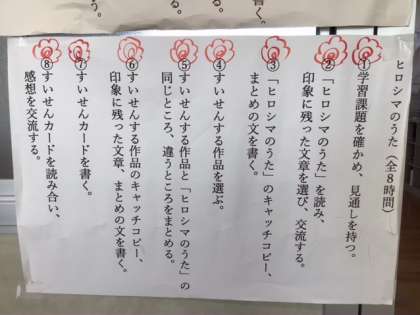 く。
る。
る。
書く。
う。
ヒロシマのうた（全８時間）
①学習課題を確かめ、見通しを持つ。
②「ヒロシマのうた」を読み、
印象に残った文章を選び、交流する。
③「ヒロシマのうた」のキャッチコピー、
まとめの文を書く。
④すいせんする作品を選ぶ。
⑤すいせんする作品と「ヒロシマのうた」の
同じところ、違うところをまとめる。
⑥すいせんする作品のキャッチコピー、
印象に残った文章、まとめの文を書く。
⑦すいせんカードを書く。
⑧すいせんカードを読み合い、
感想を交流する。